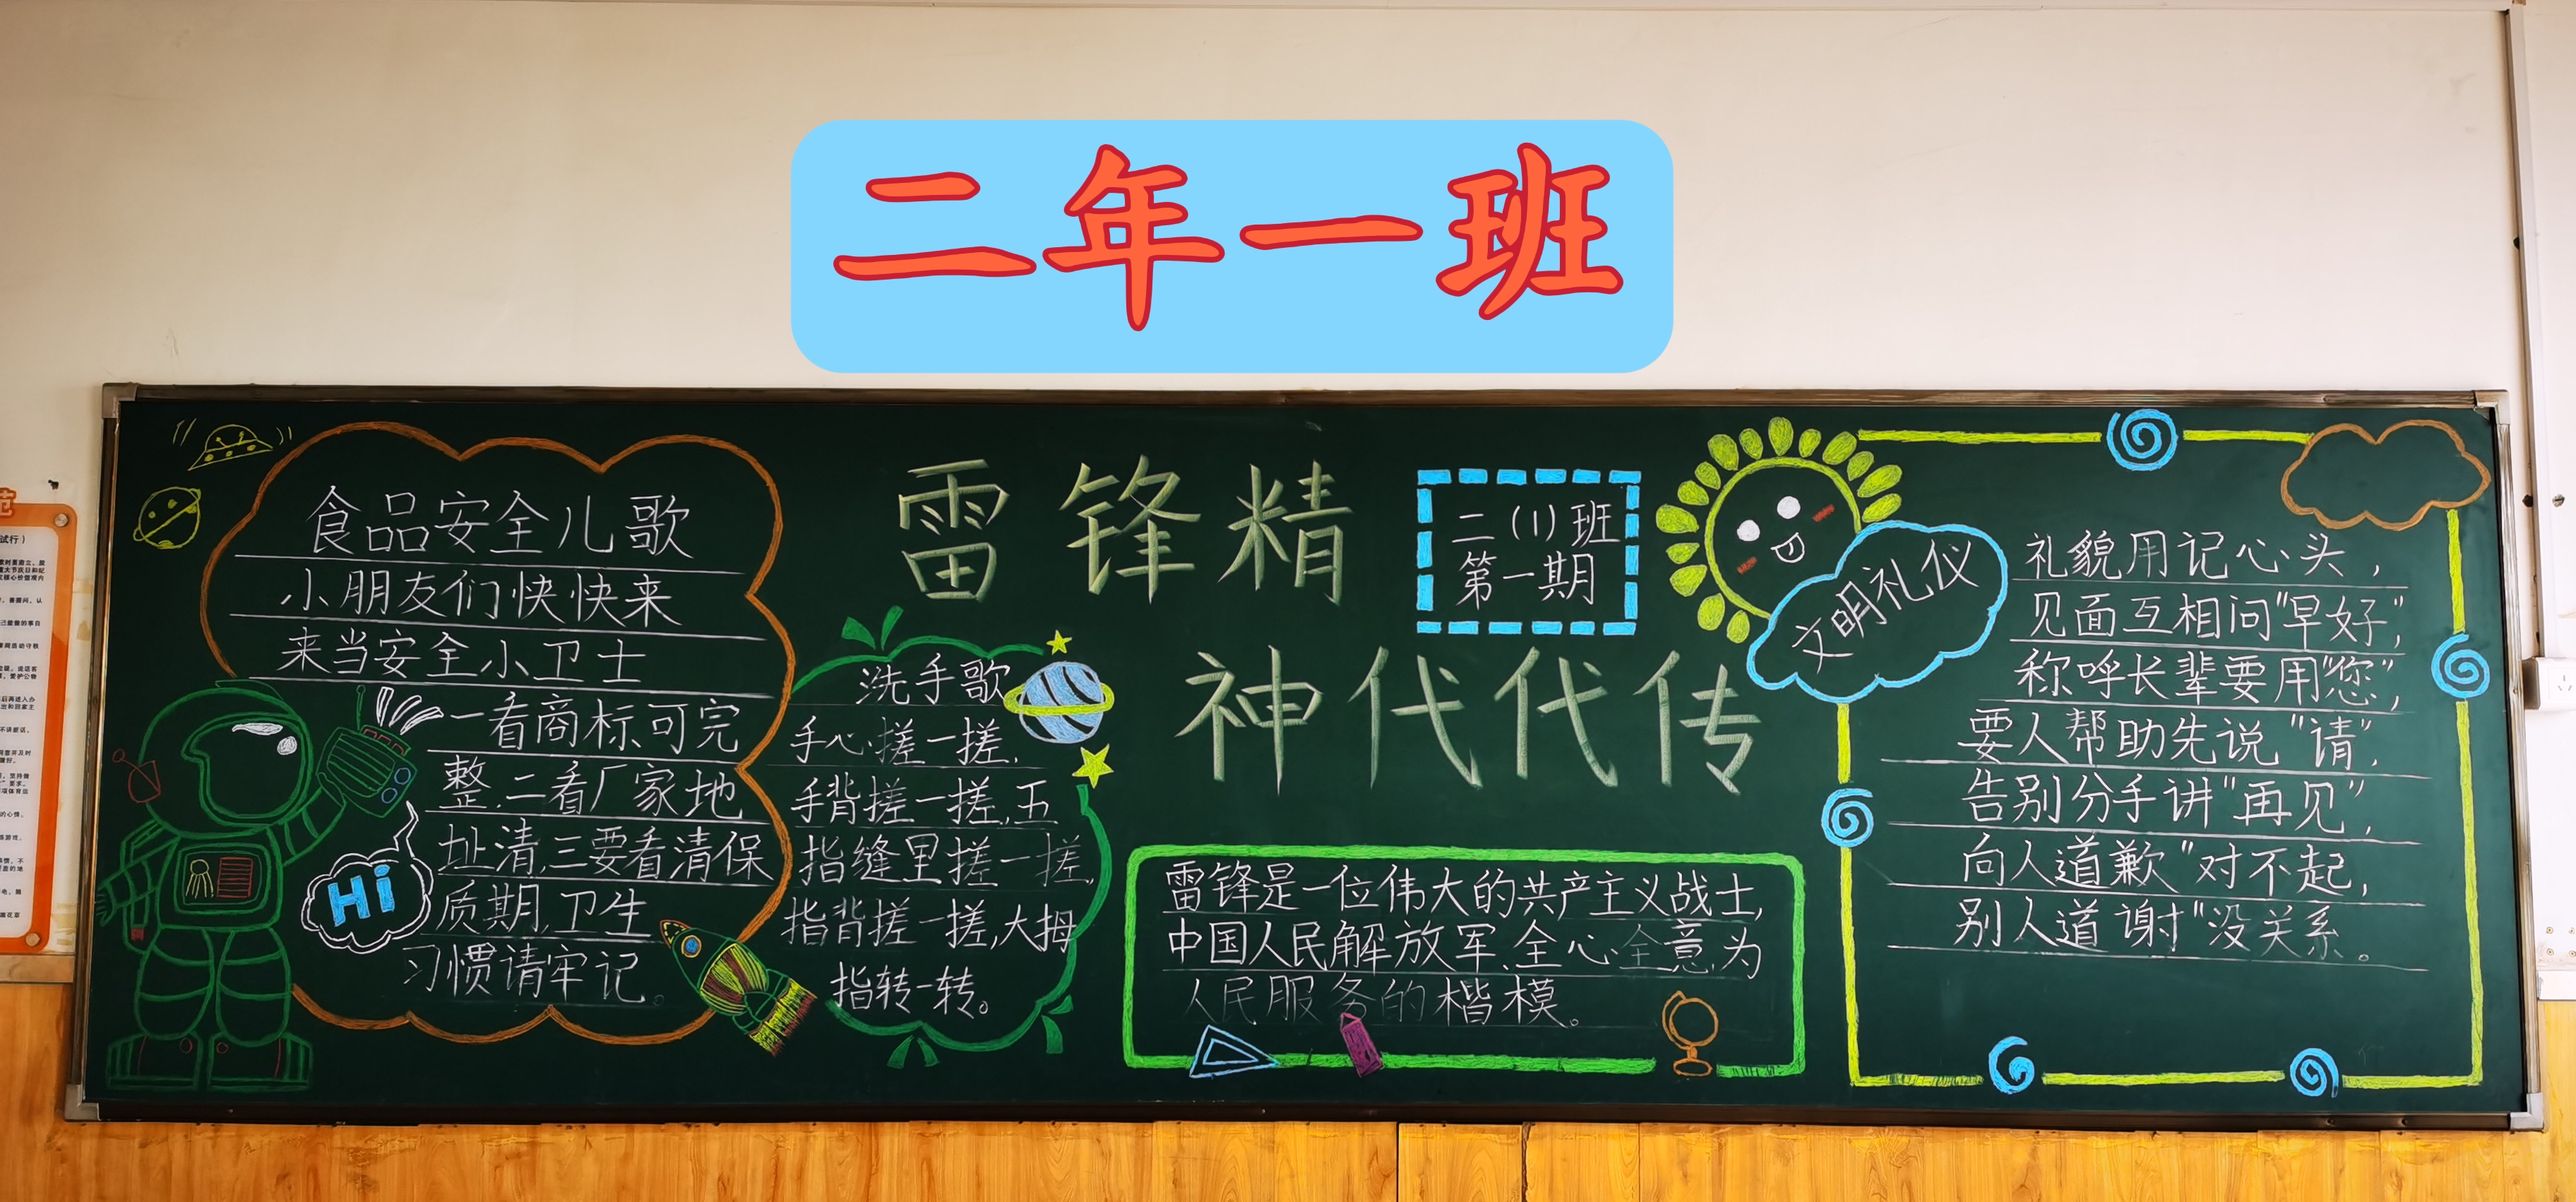 二年一班
食品安全儿歌
小朋友们快快来
来当安全小卫士
一看商标可完
整,二看厂家地
址清,三要看清保
质期,卫生
习惯请牢记。
Hi
洗手歌
手心搓一搓,
手背搓一搓,五
指缝里搓一搓,
指背搓一搓,大拇
指转一转。
雷锋精
神代代传
二(1)班
第一期
雷锋是一位伟大的共产主义战士,
中国人民解放军、全心全意为
人民服务的楷模。
文明礼仪
礼貌用记心头,
见面互相问"早好",
称呼长辈要用"您",
要人帮助先说"请",
告别分手讲"再见",
向人道歉"对不起,
别人道谢"没关系。
范
试行)